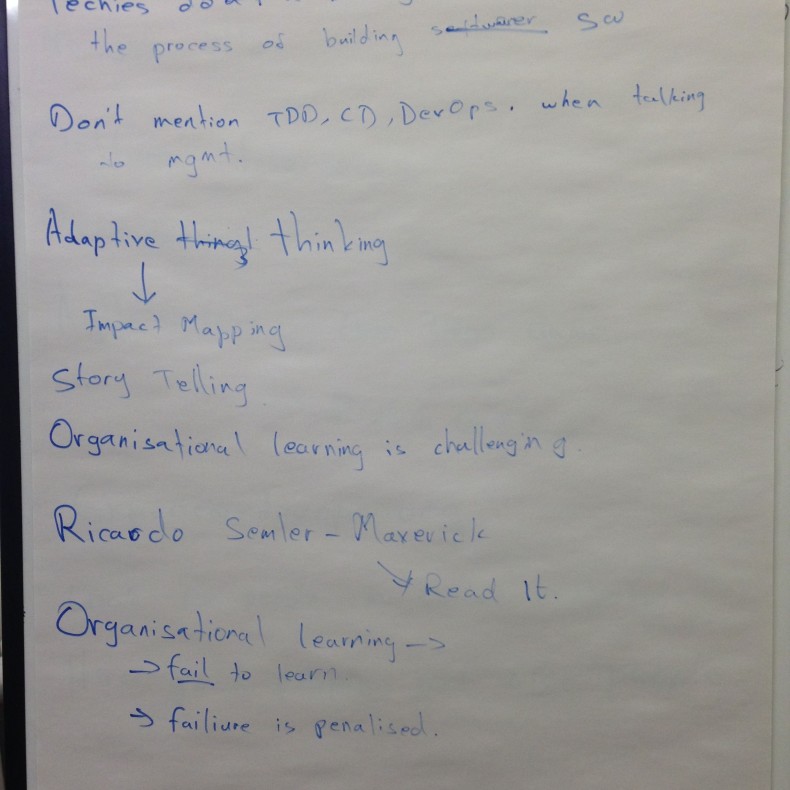 Techies don't
the process of building softwarer SW
Don't mention TDD, CD, DevOps. when talking
to mgmt.
Adaptive things thinking
Impact Mapping
Story Telling
Organisational learning is challenging.
Ricardo Semler - Maverick
Read It.
Organisational learning ->
-> fail to learn.
-> failiure is penalised.